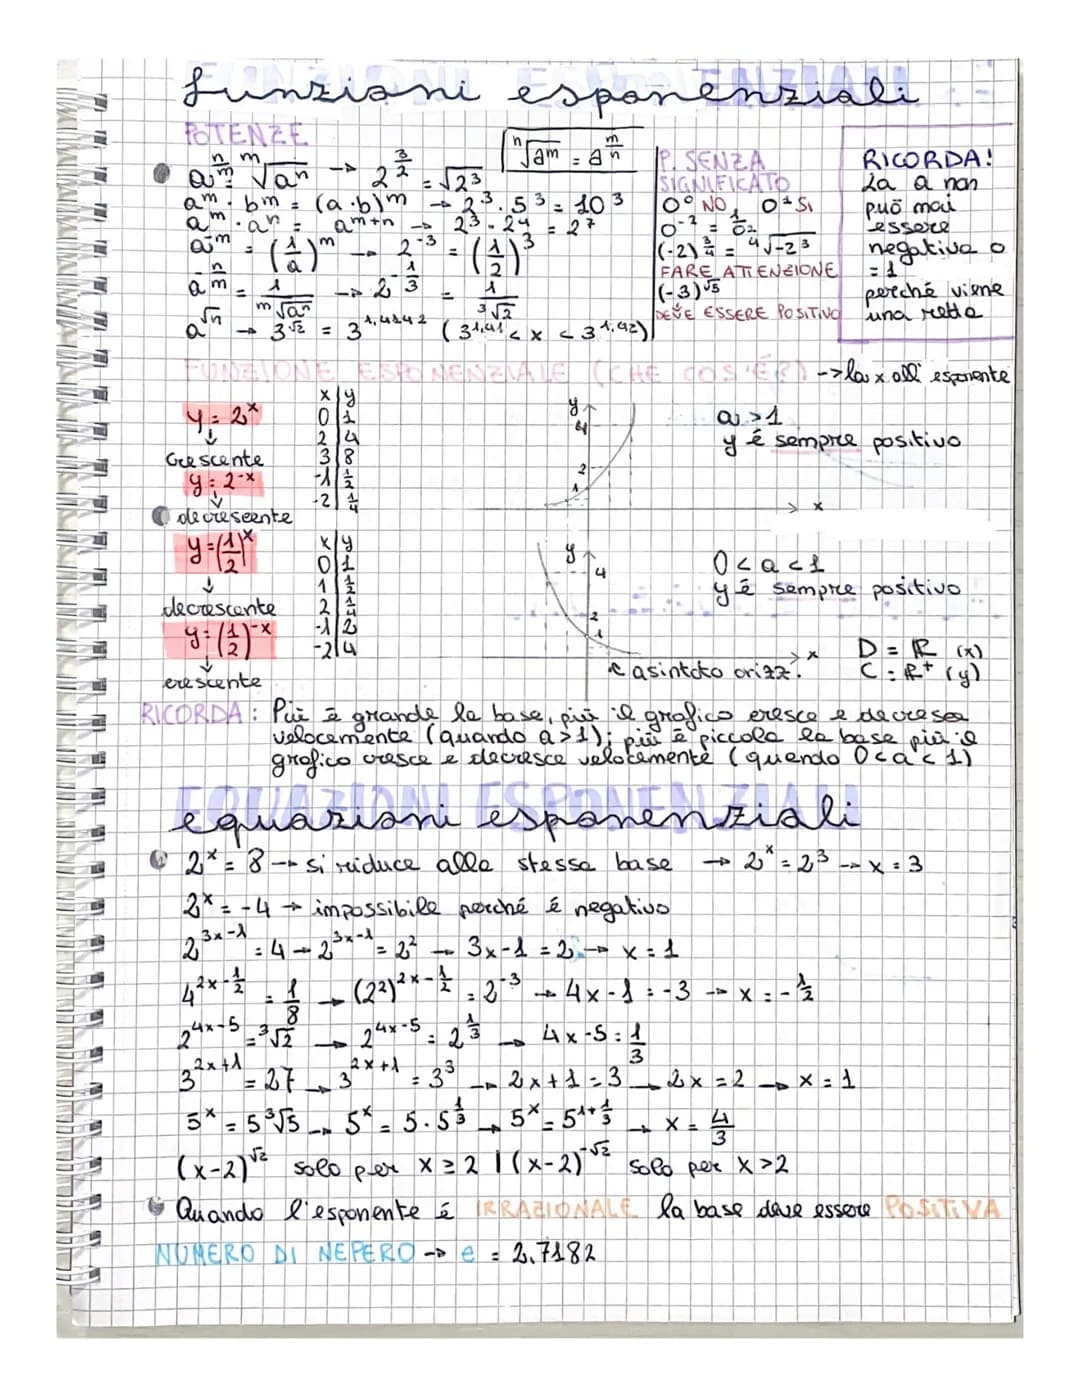 funzioni esponenziali
POTENZE
ⁿ√aᵐ = a^(m/n)
a^(n/m) = ᵐ√aⁿ → 2^(3/2) = √2³
aᵐ · bᵐ = (a·b)ᵐ → 2³ · 5³ = 10³
aᵐ · aⁿ = a^(m+n) → 2³ · 2⁴ = 2⁷
a^-m = (1/a)^m → 2^-3 = (1/2)³
a^(-n/m) = 1/ᵐ√aⁿ → 2^(-1/3) = 1/³√2
a^√n → 3^√2 = 3^1,4142 (3^1,41 < x < 3^1,42)
P. SENZA
SIGNIFICATO
0⁰ NO, 0¹ SI
0^-2 = 1/0²
(-2)^(3/4) = ⁴√-2³
FARE ATTENZIONE
(-3)^√5
DEVE ESSERE POSITIVO
RICORDA!
La a non
può mai
essere
negativa o
= 1
perché viene
una retta
FUNZIONE ESPONENZIALE (CHE COS'É?) -> la x all' esponente
y = 2^x
↓
crescente
y = 2^-x
↓
decrescente
x | y
0 | 1
2 | 4
3 | 8
-1 | 1/2
-2 | 1/4
y
4
2
1
x
a > 1
y é sempre positivo
y = (1/2)^x
↓
decrescente
y = (1/2)^-x
↓
crescente
x | y
0 | 1
1 | 1/2
2 | 1/4
-1 | 2
-2 | 4
y
4
2
1
x
asintoto orizz.
0 < a < 1
y é sempre positivo
D = R (x)
C = R⁺ (y)
RICORDA : Più è grande la base, più il grafico cresce e decresce
velocemente (quando a > 1); più è piccola la base più il
grafico cresce e decresce velocemente (quando 0 < a < 1)
equazioni esponenziali
2^x = 8 → si riduce alla stessa base → 2^x = 2³ → x = 3
2^x = -4 → impossibile perché é negativo
2^(3x-1) = 4 → 2^(3x-1) = 2² → 3x-1 = 2 → x = 1
4^(2x-1/2) = 1/8 → (2²)^(2x-1/2) = 2^-3 → 4x-1 = -3 → x = -1/2
2^(4x-5) = ³√2 → 2^(4x-5) = 2^(1/3) → 4x-5 = 1/3
3^(2x+1) = 27 → 3^(2x+1) = 3³ → 2x+1 = 3 → 2x = 2 → x = 1
5^x = 5³√5 → 5^x = 5 · 5^(1/3) → 5^x = 5^(1+1/3) → x = 4/3
(x-2)^√2 solo per x ≥ 2 | (x-2)^-√2 solo per x > 2
Quando l'esponente é IRRAZIONALE la base deve essere POSITIVA
NUMERO DI NEPERO → e = 2,7182